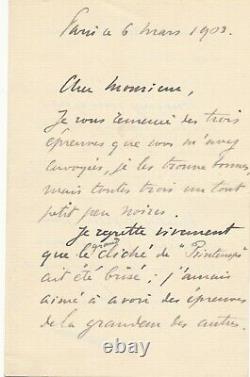 Paris le 6 mars 1903.
Cher Monsieur,
Je vous remercie des trois
épreuves que vous m'avez
envoyées, je les trouve bonnes,
mais toutes trois un tout
petit peu noires.
Je regrette vivement
que le grand cliché de "Printemps"
ait été brisé ; j'aurais
aimé à avoir des épreuves
de la grandeur des autres.